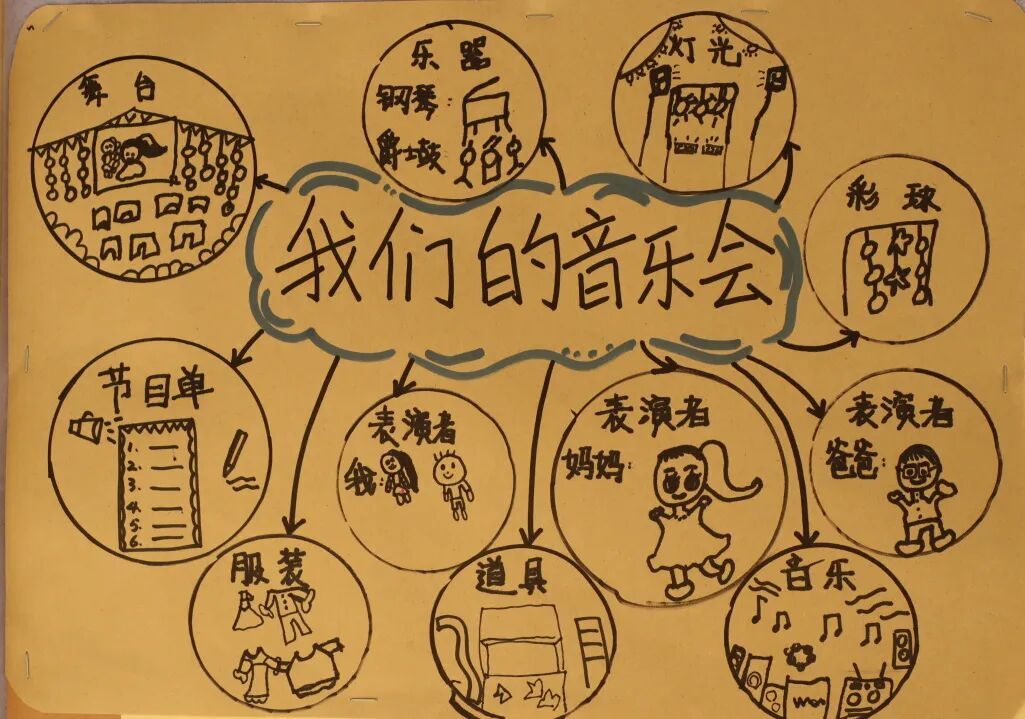 舞台
乐器
钢琴:
爵士鼓
灯光
彩球
我们的音乐会
节目单
1.
2.
3.
4.
5.
6.
表演者
我:
表演者
妈妈:
表演者
爸爸:
服装
道具
音乐